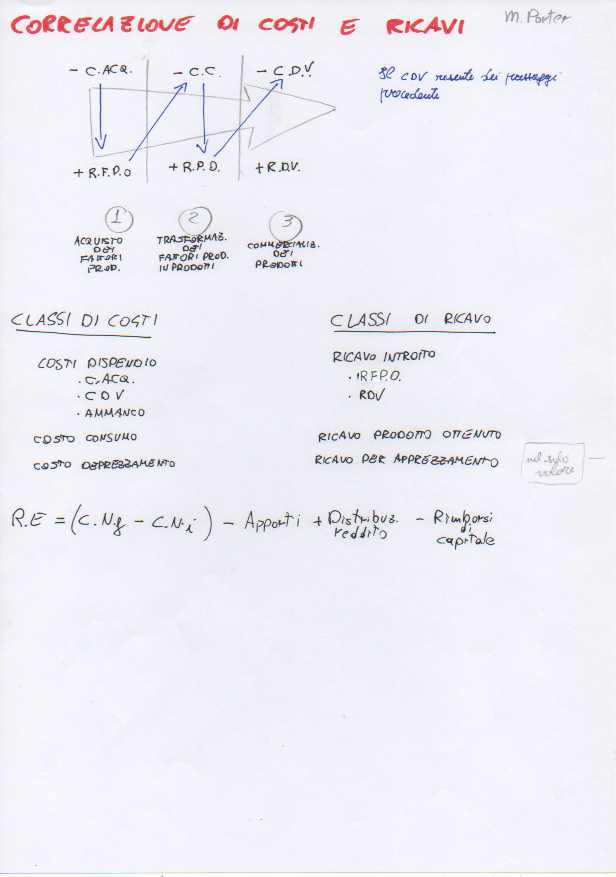 CORRELAZIONE DI COSTI E RICAVI
M. Porter
- C.ACQ. - C.C. - C.D.V.
Il CDV risente dei passaggi
precedente
+ R.F.P.O + R.P.O. + R.D.V.
1 2 3
ACQUISTO
DEI
FATTORI
PROD.
TRASFORMAZ.
DEI
FATTORI PROD.
IN PRODOTTI
COMMERCIALIZ.
DEI
PRODOTTI
CLASSI DI COSTI
COSTI DISPENDIO
· C.ACQ.
· C D V
· AMMANCO
COSTO CONSUMO
COSTO DEPREZZAMENTO
CLASSI DI RICAVO
RICAVO INTROITO
· R.F.P.O.
· RDV
RICAVO PRODOTTO OTTENUTO
RICAVO PER APPREZZAMENTO
nel suo
valore
R.E = (C.N.f - C.N.i) - Apporti + Distribuz. - Rimborsi
reddito di
capitale